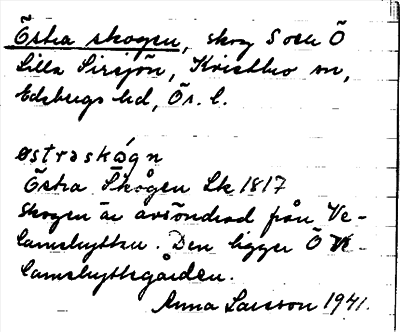 Östra skogen, skog S och Ö
Lilla Sirsjön, Kvistbro sn,
Edsbergs hd, Ör. l.
østraskógn
Östra Skogen Lk 1817
Skogen är avsöndrad från Ve-
lamshyttan. Den ligger Ö
lamshyttegården.
Anna Larsson 1941.